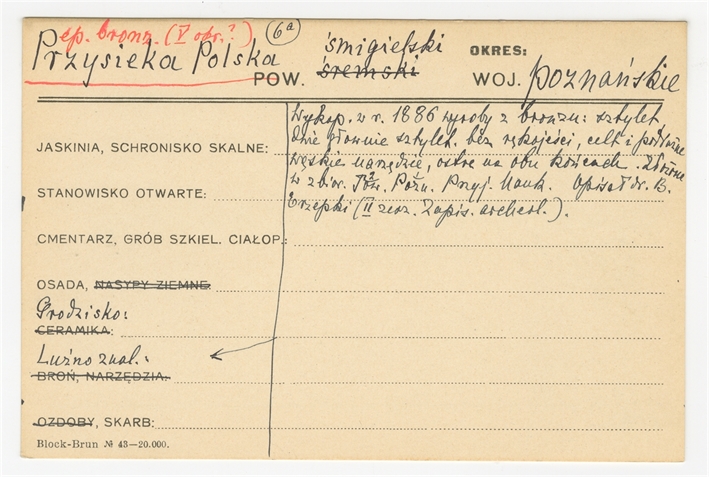 ep. bronz. (V okr.?) 6a
Przysieka Polska
POW. śmigielski śremski
OKRES:
WOJ. poznańskie
Wykop. w r. 1886 wyroby z bronzu: sztylet,
dwie głownie sztylet. bez rękojeści, celt i podłużne
wąskie narzędzie, ostre na obu końcach. Złożone
w zbior. Tow. Pozn. Przyj. Nauk. Opisał dr. B.
Erzepki (II zesz. Zapis. archeol.).
JASKINIA, SCHRONISKO SKALNE:
STANOWISKO OTWARTE:
CMENTARZ, GRÓB SZKIEL. CIAŁOP.:
OSADA, NASYPY ZIEMNE
Grodzisko:
CERAMIKA:
Luźno znal.:
BROŃ, NARZĘDZIA:
OZDOBY, SKARB:
Block-Brun № 43—20.000.